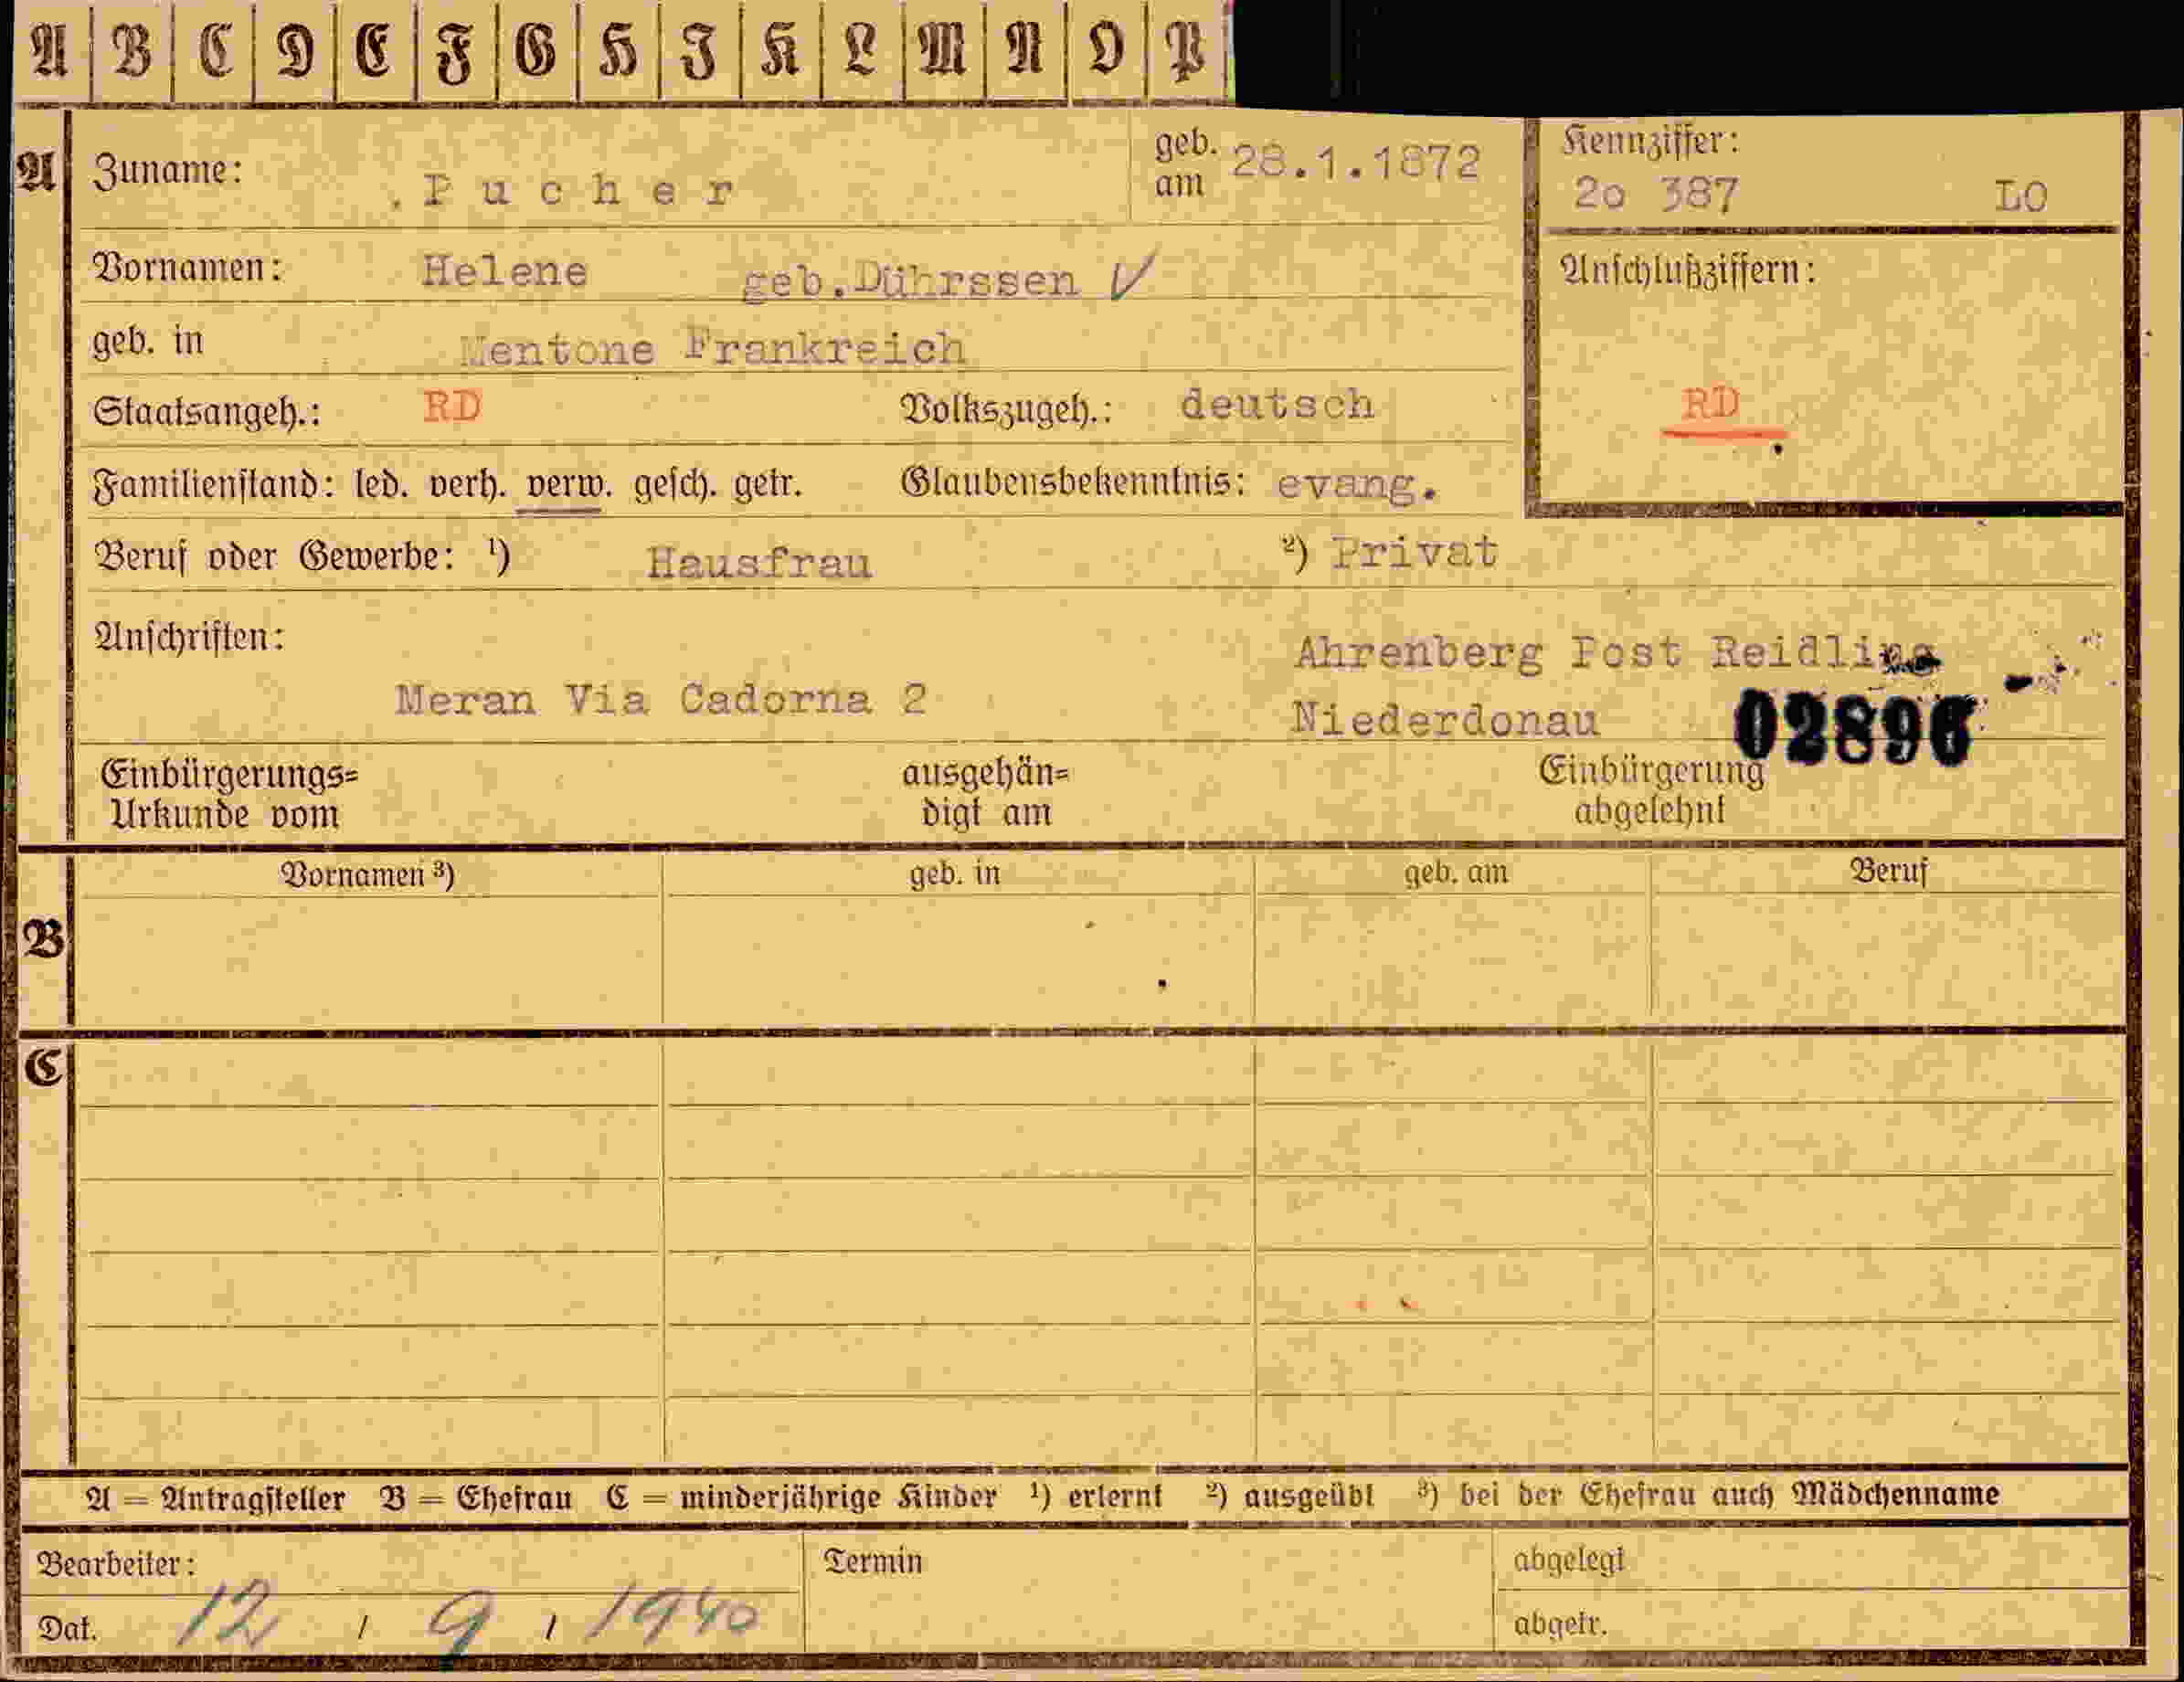 A B C D E F G H I K L M N O P
A Zuname: Pucher geb. am 28.1.1872 Kennziffer: 2o 387 LO
Vornamen: Helene geb.Dührssen V Anschlußziffern:
geb. in Mentone Frankreich
Staatsangeh.: RD Volkszugeh.: deutsch RD
Familienstand: led. verh. verw. gesch. getr. Glaubensbekenntnis: evang.
Beruf oder Gewerbe: ¹) Hausfrau ²) Privat
Anschriften: Ahrenberg Post Reidling
Meran Via Cadorna 2 Niederdonau 02896
Einbürgerungs= ausgehän= Einbürgerung
Urkunde vom digt am abgelehnt
Vornamen ³) geb. in geb. am Beruf
B
C
A = Antragsteller B = Ehefrau C = minderjährige Kinder ¹) erlernt ²) ausgeübt ³) bei der Ehefrau auch Mädchenname
Bearbeiter: Termin abgelegt
Dat. 12 / 9 / 1940 abgetr.